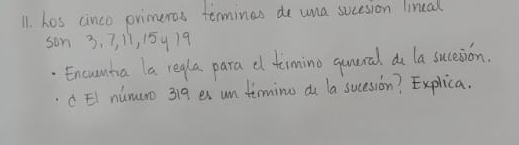 11. Los cinco primeros términos de una sucesión lineal
son 3, 7, 11, 15 y 19
• Encuentra la regla para el término general de la sucesión.
• ¿ El número 319 es un término de la sucesión? Explica.